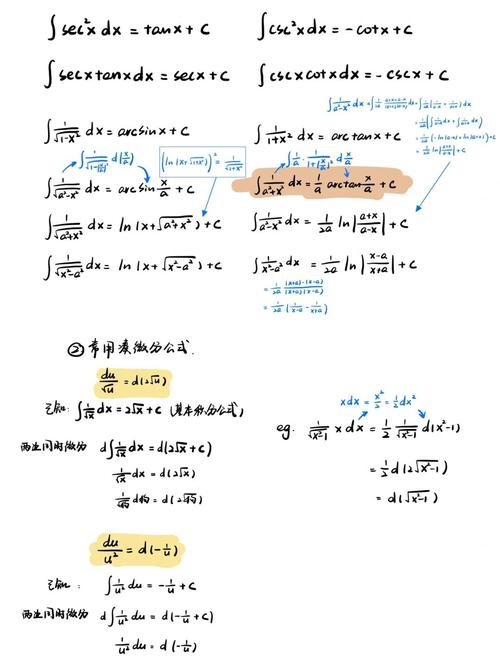 ∫sec²x dx = tanx + C
∫csc²x dx = -cotx + C
∫secxtanxdx = secx + C
∫cscxcotxdx = -cscx + C
∫1/√(1-x²) dx = arcsinx + C
∫1/(1+x²) dx = arctanx + C
(ln|x+√(1+x²)|)' = 1/√(1+x²)
∫1/√(a²-x²) dx = arcsin x/a + C
∫1/(a²+x²) dx = 1/a arctan x/a + C
∫1/√(a²+x²) dx = ln(x+√(a²+x²)) + C
∫1/(a²-x²) dx = 1/2a ln|(a+x)/(a-x)| + C
∫1/√(x²-a²) dx = ln|x+√(x²-a²)| + C
∫1/(x²-a²) dx = 1/2a ln|(x-a)/(x+a)| + C
= 1/2a (x+a)-(x-a)/(x+a)(x-a)
= 1/2a (1/(x-a) - 1/(x+a))
②常用凑微分公式.
du/√u = d(2√u)
已知: ∫1/√x dx = 2√x + C (基本积分公式)
两边同时微分 d∫1/√x dx = d(2√x + C)
1/√x dx = d(2√x)
xdx = x²/2 = 1/2 dx²
eg. 1/√(x²-1) xdx = 1/2 1/√(x²-1) d(x²-1)
= 1/2 d(2√(x²-1))
= d(√(x²-1))
du/u² = d(-1/u)
已知: ∫1/u² du = -1/u + C
两边同时微分 d∫1/u² du = d(-1/u + C)
1/u² du = d(-1/u)